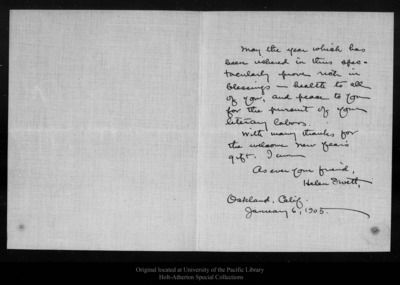 May the year which has
been ushered in thus spec-
tacularly prove rich in
blessings in health to all
of you, and peace to you
for the pursuit of your
literary labors.
With many thanks for
the welcome New Year's
gift, I am
As ever your friend,
Helen Swett.
Oakland, Calif.
January 6, 1905.
Original located at University of the Pacific Library
Holt-Atherton Special Collections